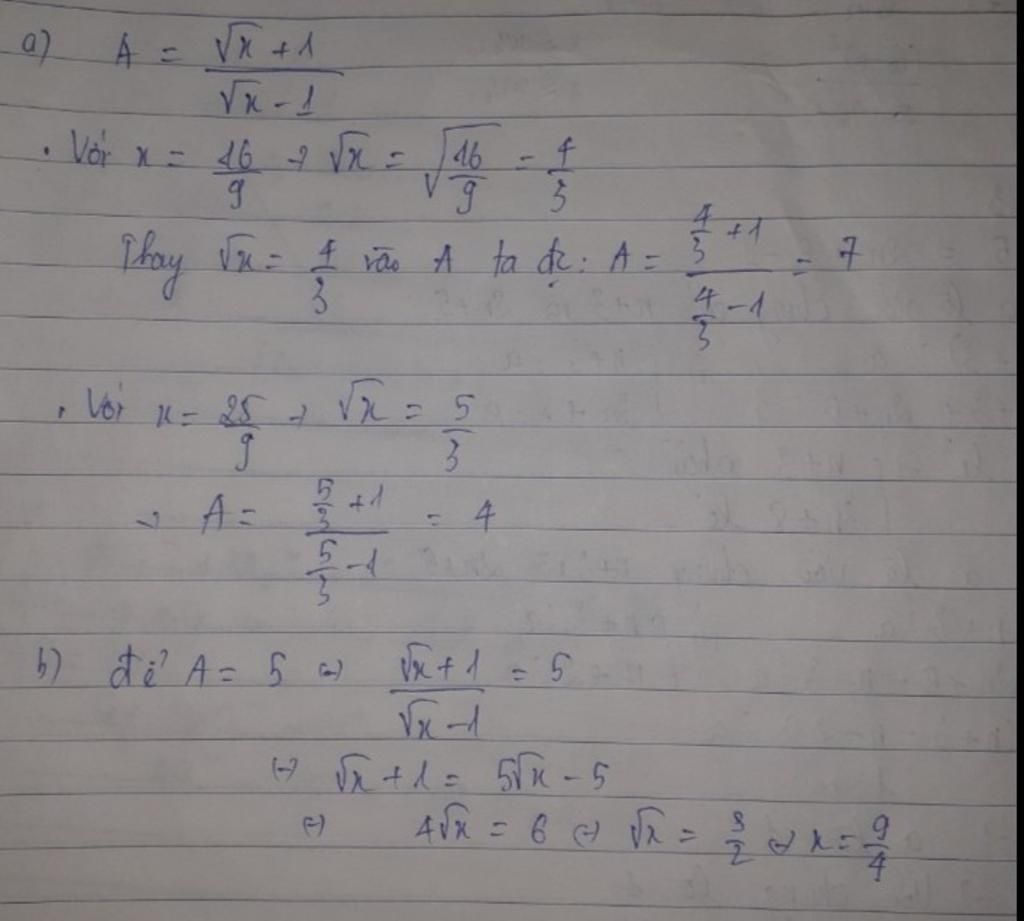 a) A = (√x + 1)/(√x - 1)
. Với x = 16/9 → √x = √(16/9) = 4/3
Thay √x = 4/3 vào A ta đc: A = (4/3 + 1)/(4/3 - 1) = 7
. Với x = 25/9 → √x = 5/3
→ A = (5/3 + 1)/(5/3 - 1) = 4
b) để A = 5 ⇔ (√x + 1)/(√x - 1) = 5
⇔ √x + 1 = 5√x - 5
⇔ 4√x = 6 ⇔ √x = 3/2 ⇔ x = 9/4